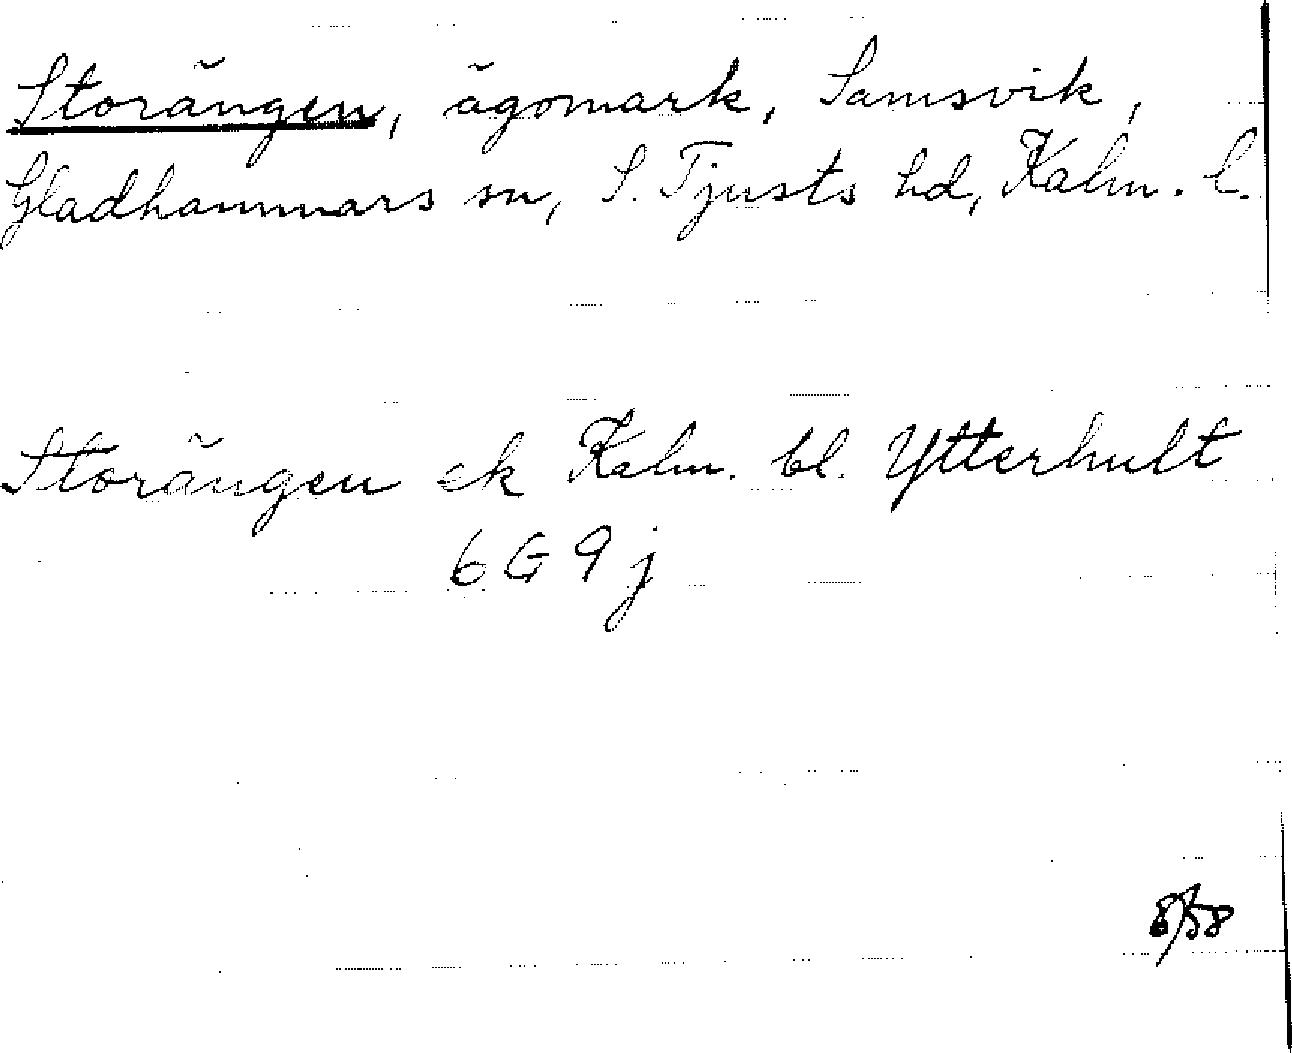 Storängen, ägomark, Samsvik,
Gladhammars sn, S. Tjusts hd, Kalm. l.
Storängen ek Kalm. bl. Ytterhult
6 G 9 j